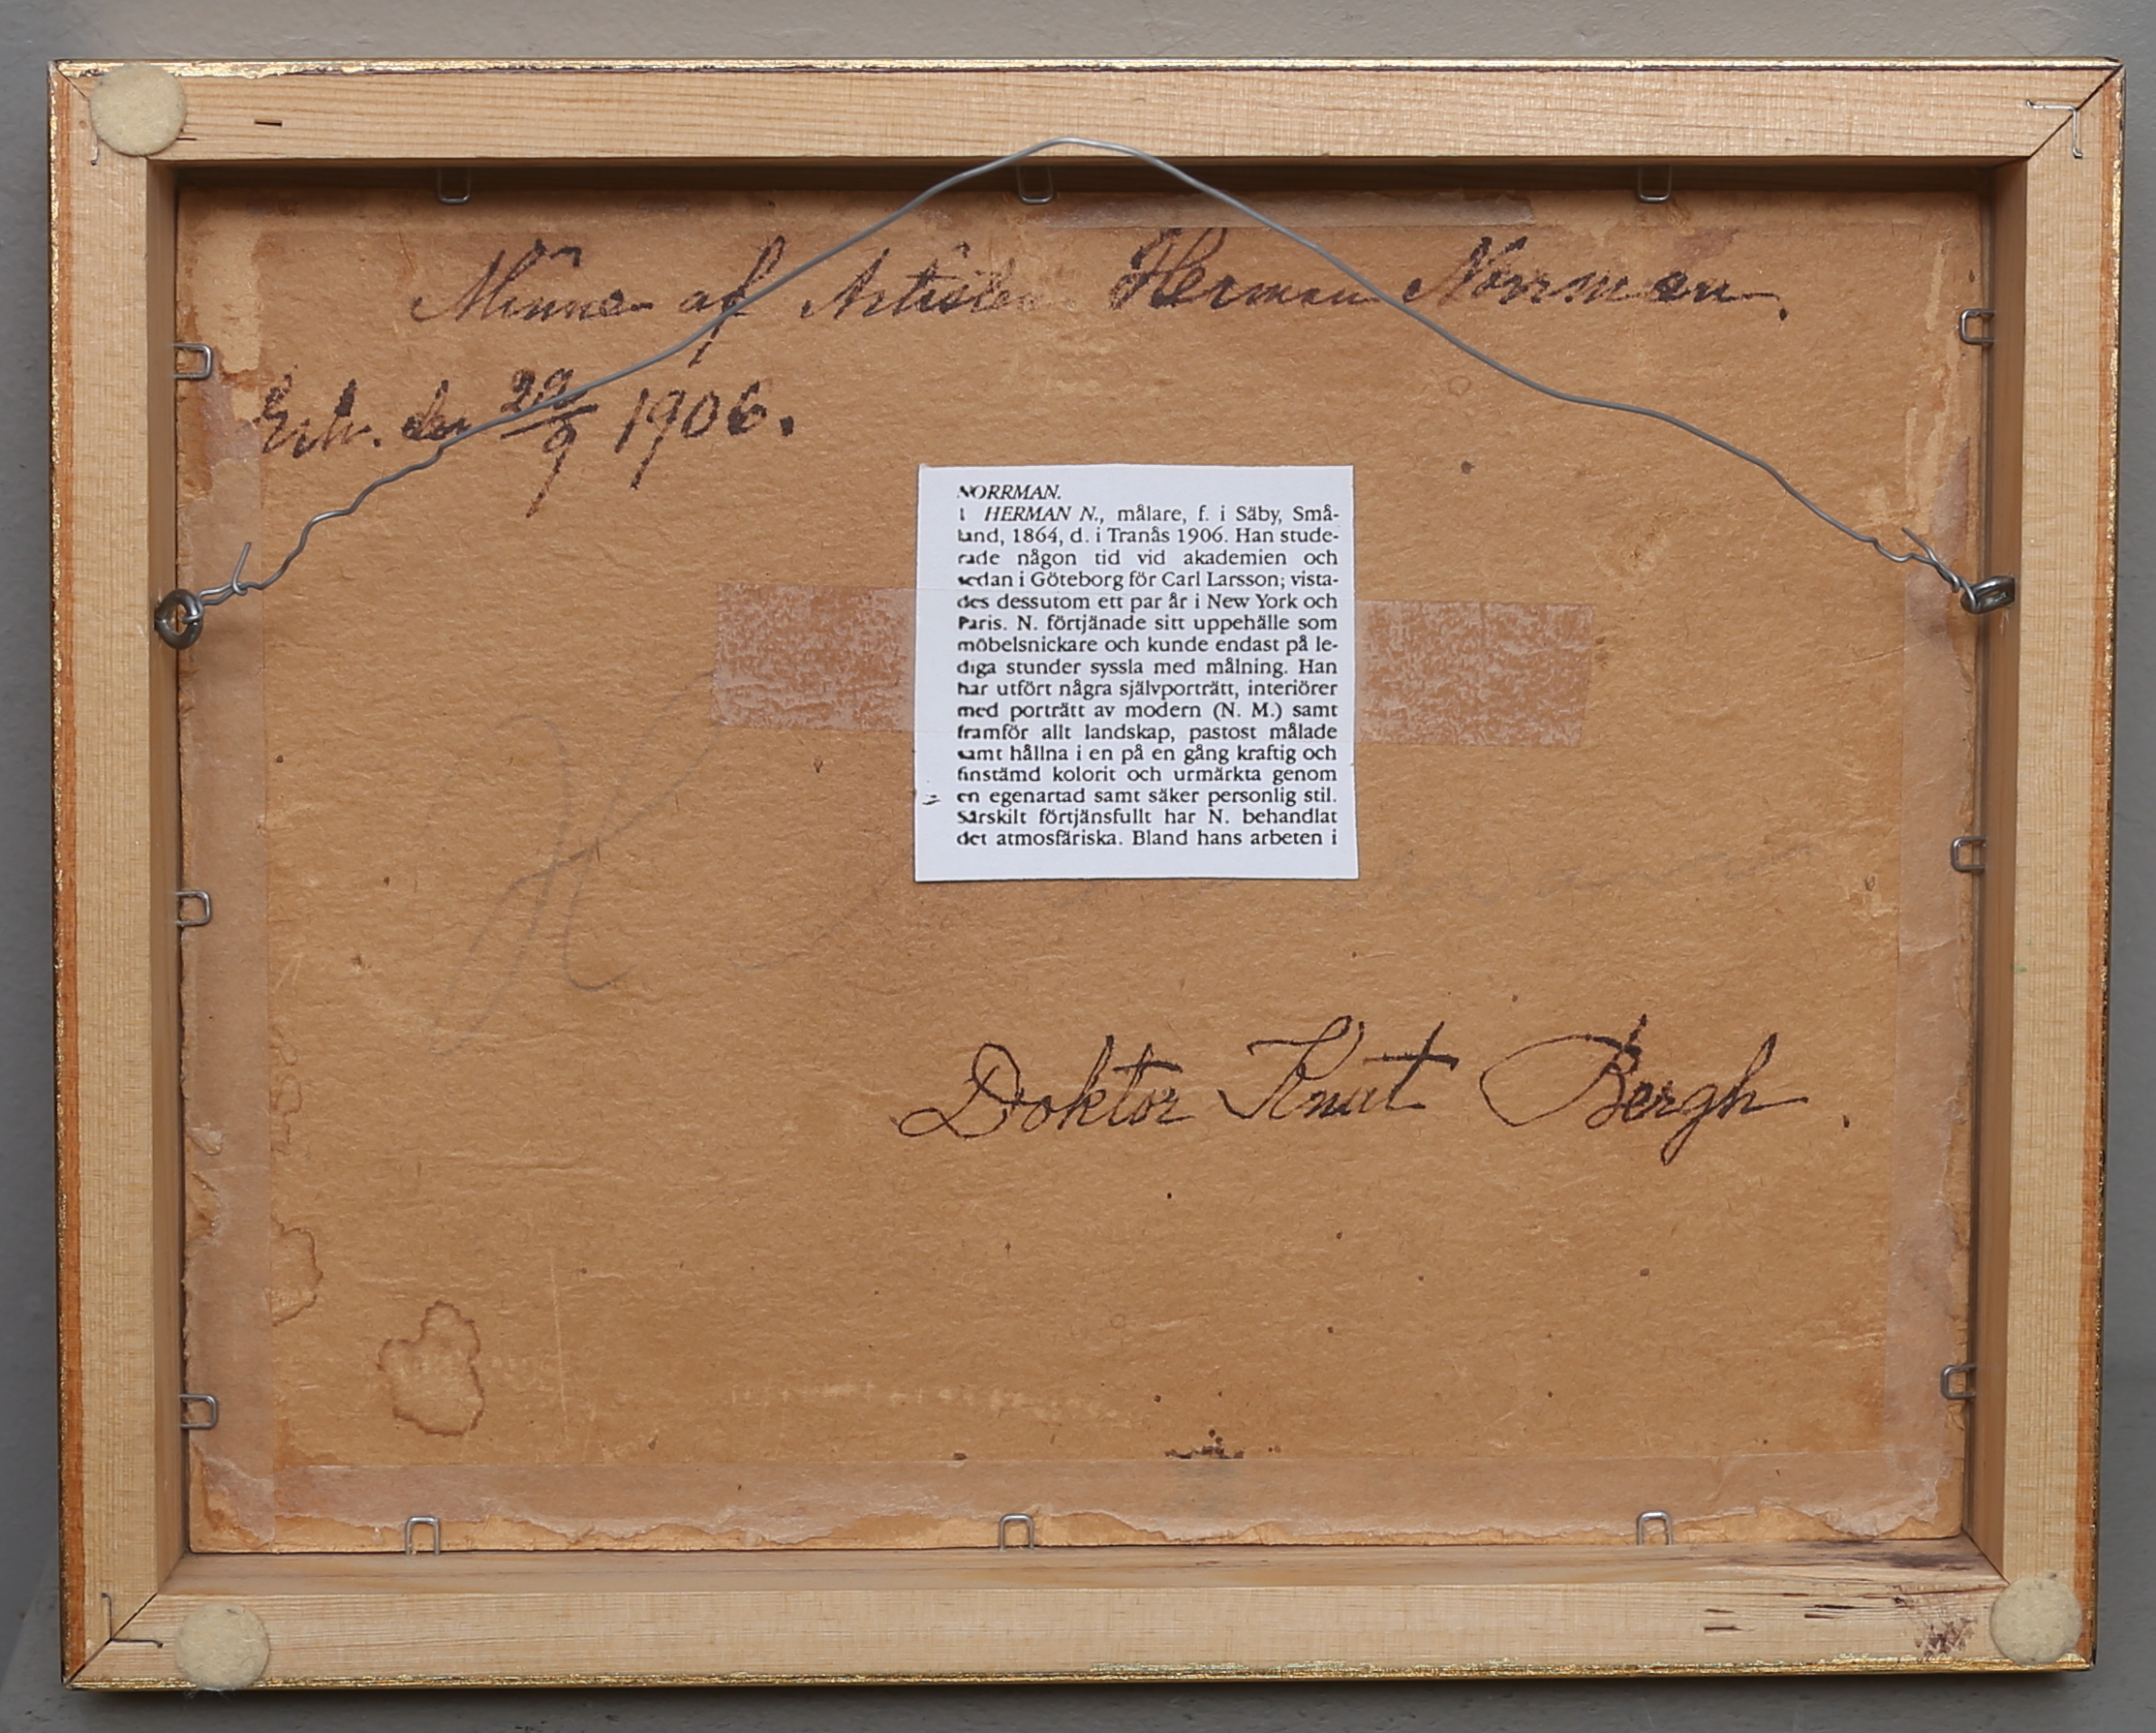 Minne af Artisten Herman Norrman.
Erh. den 29/9 1906.
NORRMAN.
1 HERMAN N., målare, f. i Säby, Små-
land, 1864, d. i Tranås 1906. Han stude-
rade någon tid vid akademien och
sedan i Göteborg för Carl Larsson; vista-
des dessutom ett par år i New York och
Paris. N. förtjänade sitt uppehälle som
möbelsnickare och kunde endast på le-
diga stunder syssla med målning. Han
har utfört några självporträtt, interiörer
med porträtt av modern (N. M.) samt
framför allt landskap, pastost målade
samt hållna i en på en gång kraftig och
finstämd kolorit och urmärkta genom
en egenartad samt säker personlig stil.
Särskilt förtjänsfullt har N. behandlat
det atmosfäriska. Bland hans arbeten i
Doktor Knut Bergh.